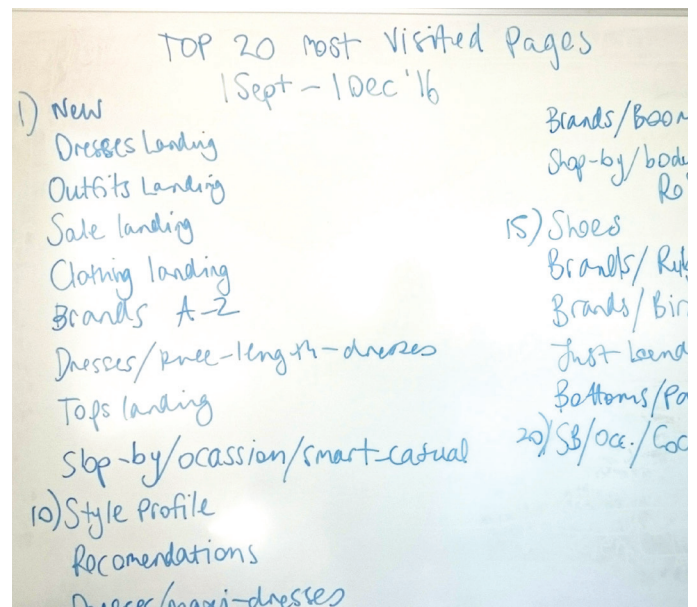 TOP 20 most Visited Pages
1 Sept - 1 Dec '16
1) New
Dresses Landing
Outfits Landing
Sale landing
Clothing landing
Brands A-Z
Dresses/knee-length-dresses
Tops landing
Sbp-by/ocassion/smart-casual
10) Style Profile
Recomendations
Dresses/maxi-dresses
Brands/Boom
Shop-by/body
15) Shoes
Brands/
Brands/Bir
Just
Bottoms/Pa
20) SB/Occ./Coc